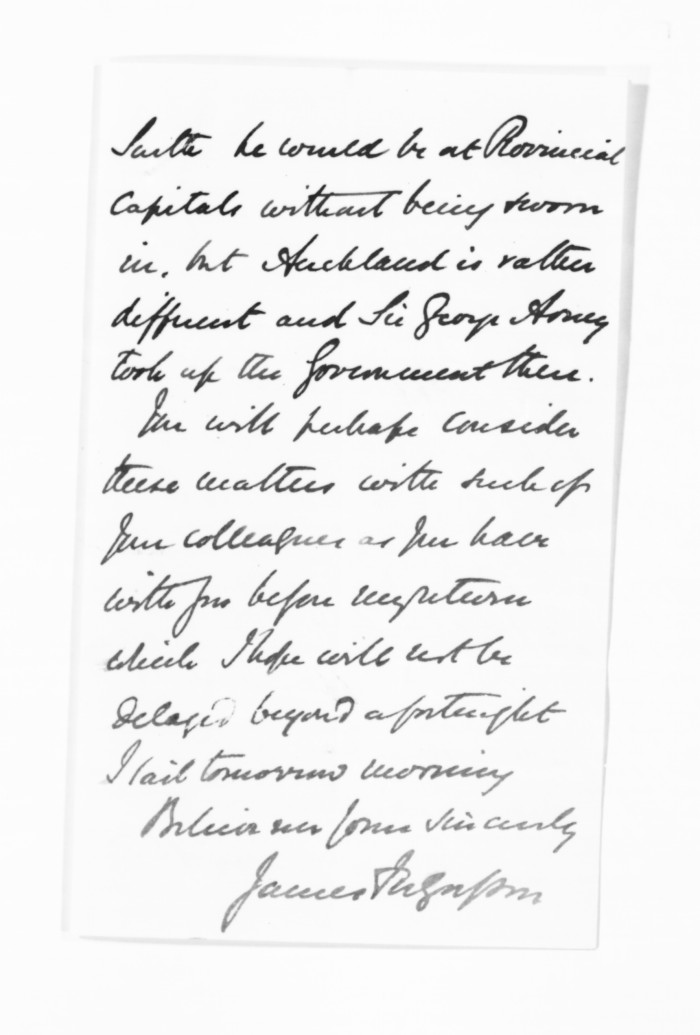 he would be at Provincial
Capitals without being sworn
in, but Auckland is rather
different and Sir George
took up the Government there.
You will perhaps consider
these matters with such of
your colleagues as you have
with you before my return
which I hope will not be
delayed beyond a fortnight
I sail tomorrow morning
Believe me yours sincerely
James Fergusson